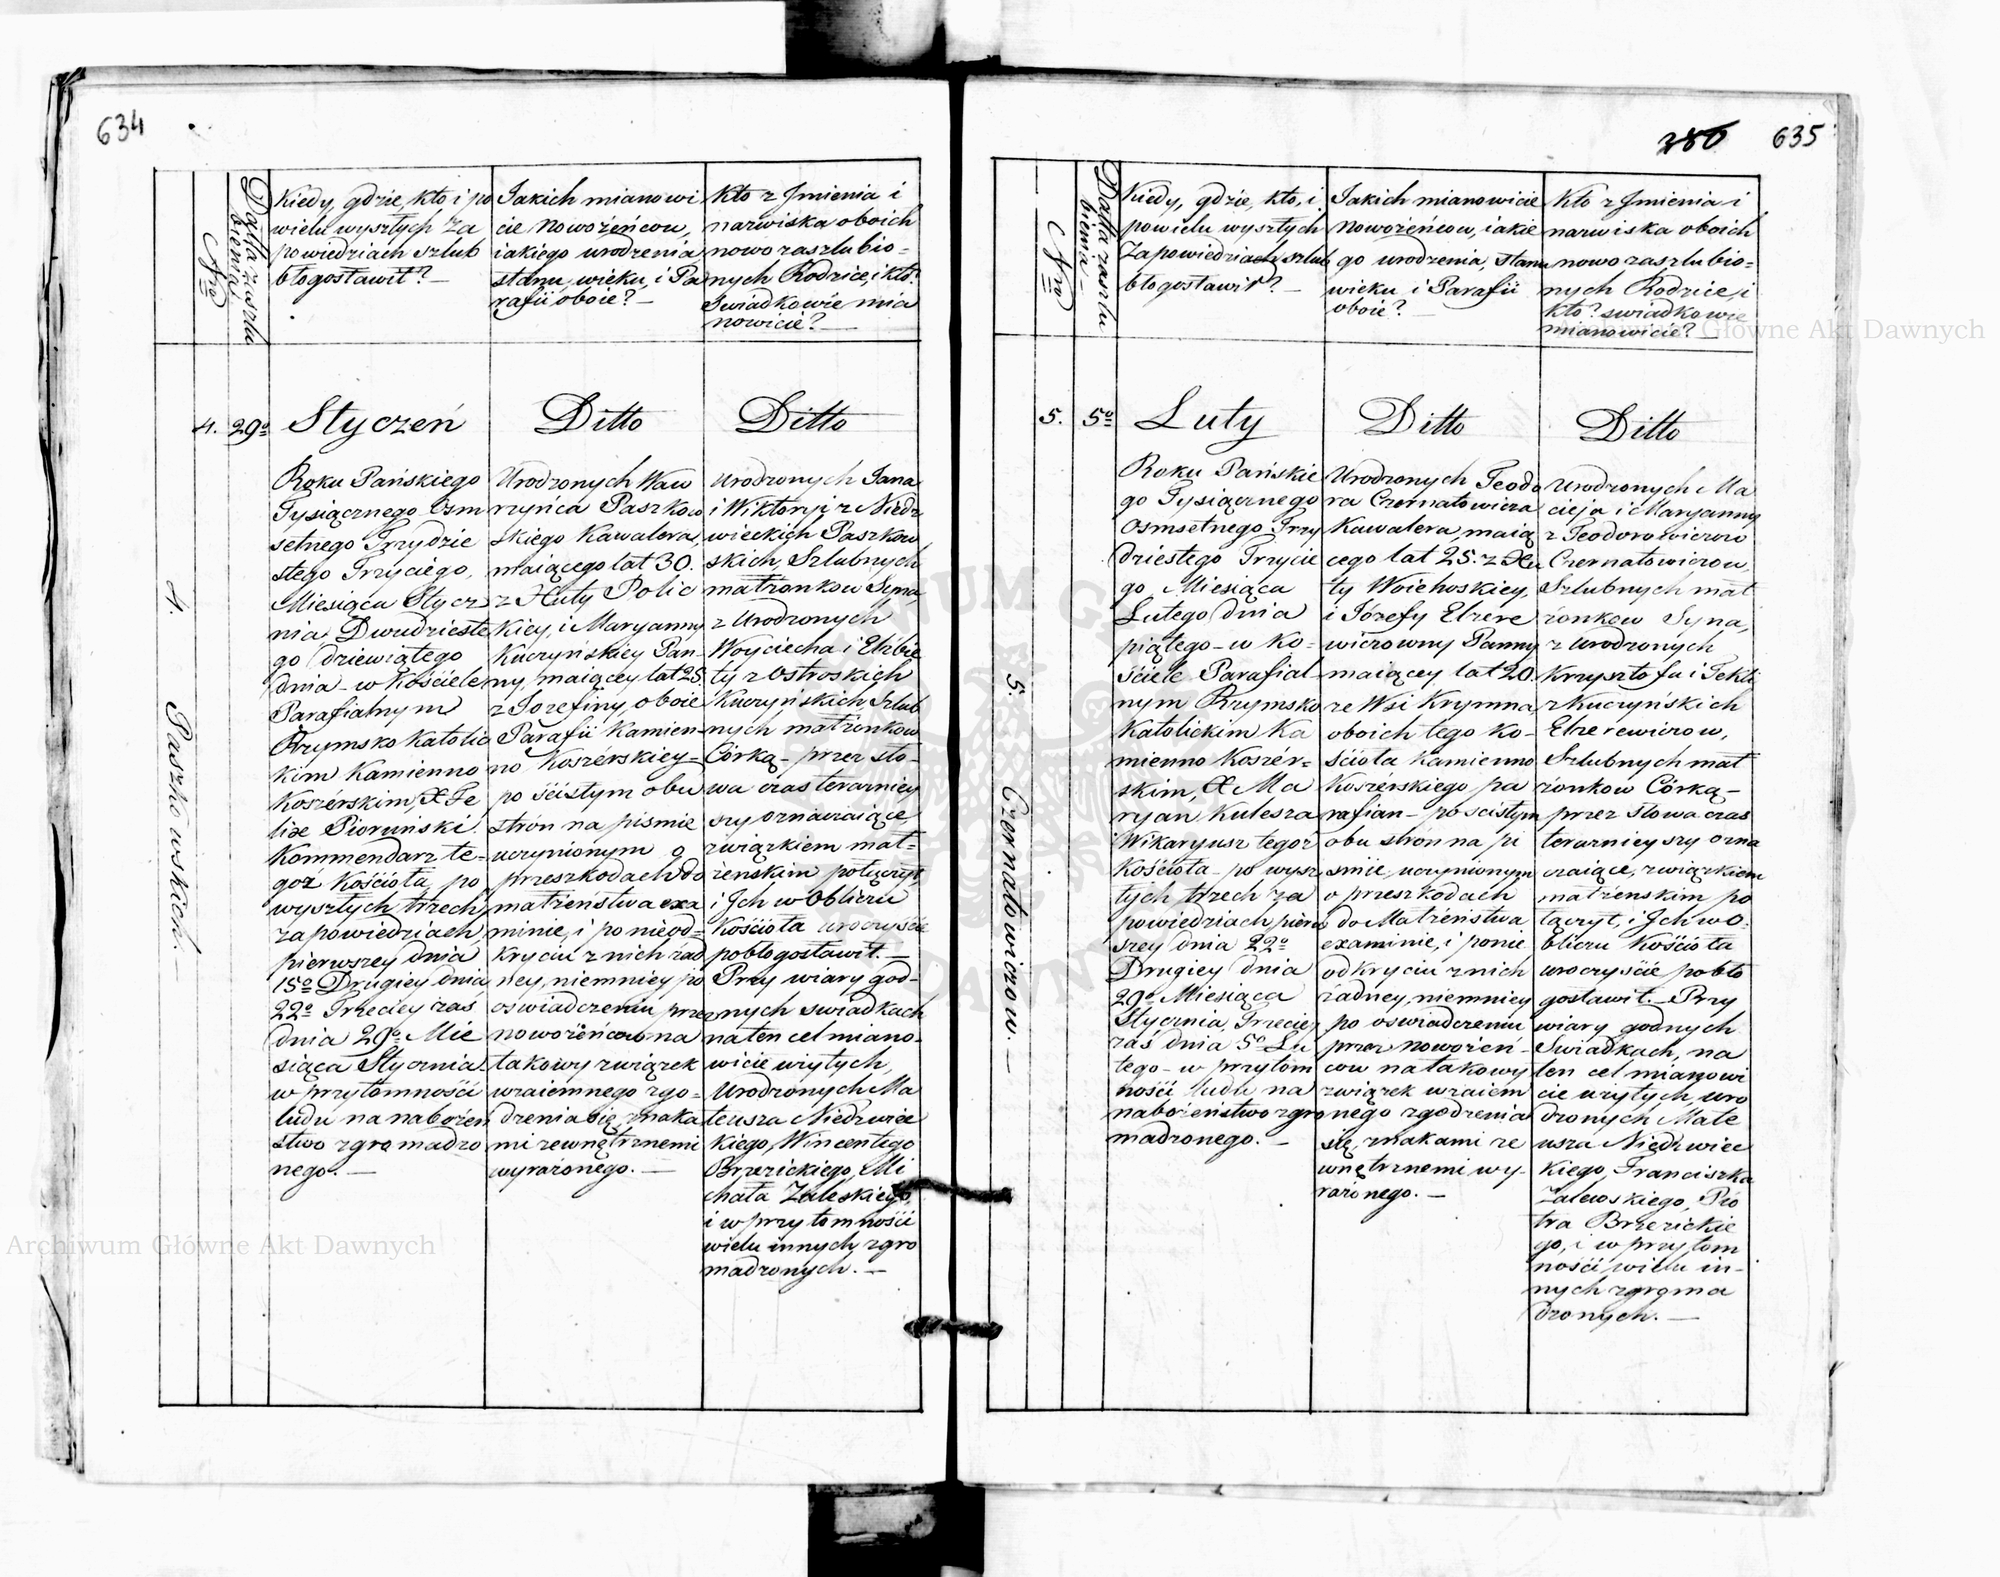 634
Nro
Datta zaszlu
bienia.
Kiedy, gdzie, kto i po
wielu wyszłych Za
powiedziach szlub
błogosławił? —
Jakich mianowi
cie Nowożeńcow,
iakiego urodzenia
stanu, wieku, i Pa
rafii oboie? —
Kto z Jmienia i
nazwiska oboich
nowo zaszlubio=
nych Rodzice, i kto?
Swiadkowie mia
nowicie? —
4. Paszkowskich. —
4.
29º
Styczeń
Roku Pańskiego
Tysiącznego Osm
setnego Trzydzie
stego Trzyciego,
Miesiąca Stycz
nia Dwudzieste
go dziewiątego
dnia - w Kościele
Parafialnym
Rzymsko Katolic
kim Kamienno
Koszérskim, X Fe
lix Pioruński.
Kommendarz te=
goż Kościoła, po
wyszłych trzech
zapowiedziach,
pierwszey dnia
15º Drugiey dnia
22º Trzeciey zaś
dnia 29º Mie
siąca Stycznia.
w przytomności
ludu na nabożeń
stwo zgromadzo
nego. —
Ditto
Urodzonych Waw
rzyńca Paszkow
skiego Kawalera,
maiącego lat 30.
z Huty Polic
kiey, i Maryanny
Kuczyńskiey Pan-
ny, maiącey lat 25
z Jozefiny, oboie
Parafii Kamien=
no Koszérskiey=
po ścisłym obu
strón na pismie
uczynionym o
przeszkodach do
matżeństwa exa
minie, i po nieod=
kryciu z nich żad
ney, niemniey po
oswiadczeniu przez
nowożeńców na
takowy związek
wzaiemnego zgo=
dzenia się, znaka
mi zewnętrznemi
wyrażonego. —
Ditto
Urodzonych Jana
i Wiktoryi z Niedz
wieckich Paszkow
skich, Szlubnych
matżonkow Syna,
z Urodzonych
Woyciecha i Elżbie
ty z Ostroskich
Kuczyńskich, Szlub
nych matżonkow
Córką - przez sło=
wa czas teraźniey
szy oznaczaiące,
związkiem mat=
żenskim połączył,
i Jch w Obliczu
Kościoła uroczyście
pobłogosławił. —
Przy wiary god=
nych swiadkach
na ten cel miano=
wicie użytych,
Urodzonych Ma
teusza Niedzwiec
kiego, Wincentego
Brzezickiego, Mi
chała Zaleskiego,
i w przytomności
wielu innych zgro
madzonych. —
635
Nro
Datta zaszlu
bienia —
Kiedy, gdzie, kto, i
po wielu wyszłych
Zapowiedziach szlub
błogosławił? —
Jakich mianowicie
Nowożéńcow, iakie
go urodzenia, stanu
wieku i Parafii
oboie?
Kto z Jmienia i
nazwiska oboich
nowo zaszlubio=
nych Rodzice, i
kto? swiadkowie
mianowicie? —
5. Czernatowiczow. —
5.
5º
Luty
Roku Pańskie
go Tysiącznego
Osmsetnego Trzy
dziestego Trzycie
go Miesiąca
Lutego dnia
piątego - w Ko=
ściele Parafial
nym Rzymsko
Katolickim Ka
mienno Koszér=
skim, X Ma
ryan Kulesza
Wikaryusz tegoż
Kościoła - po wysz
łych trzech za
powiedziach pierw
szey dnia 22º
Drugiey dnia
29º Miesiąca
Stycznia, Trzeciey
zaś dnia 5º Lu
tego - w przytom
ności ludu na
nabożeństwo zgro
madzonego. —
Ditto
Urodzonych Teodo
ra Czernatowicza
Kawalera, maią
cego lat 25. z Hu
ty Woiehoskiey,
i Józefy Elzere
wiczowny Panny
maiącey lat 20.
ze Wsi Krymna,
oboich tego Ko=
ścioła Kamienno
Koszérskiego pa
rafian - po scisłym
obu stron na pi
smie uczynionym
o przeszkodach
do Matżeństwa
examinie, i ponie
odkryciu z nich
żadney, niemniey
po oswiadczeniu
przez nowożeń=
cow na takowy
związek wzaiem
nego zgodzenia
się, znakami ze
wnętrznemi wy=
rażonego. —
Ditto
Urodzonych Ma
cieja i Maryanny
z Teodorowiczow
Czernatowiczow,
Szlubnych mat
żonkow Syna,
z Urodzonych
Krzysztofa i Tekli
z Kuczyńskich
Elzerewiczow,
Szlubnych mat
żonkow Córką —
przez słowa czas
teraźnieyszy ozna
czaiące, związkiem
matżenskim po
łączył, i Jch w O=
bliczu Kościoła
uroczyście pobło
gosławił. — Przy
wiary godnych
Swiadkach, na
ten cel mianowi
cie użytych, uro
dzonych Mate
usza Niedzwiec
kiego, Franciszka
Zalewskiego, Pio
tra Brzezickie
go, i w przytom
ności wielu in=
nych zgroma
dzonych. —
Archiwum Główne Akt Dawnych